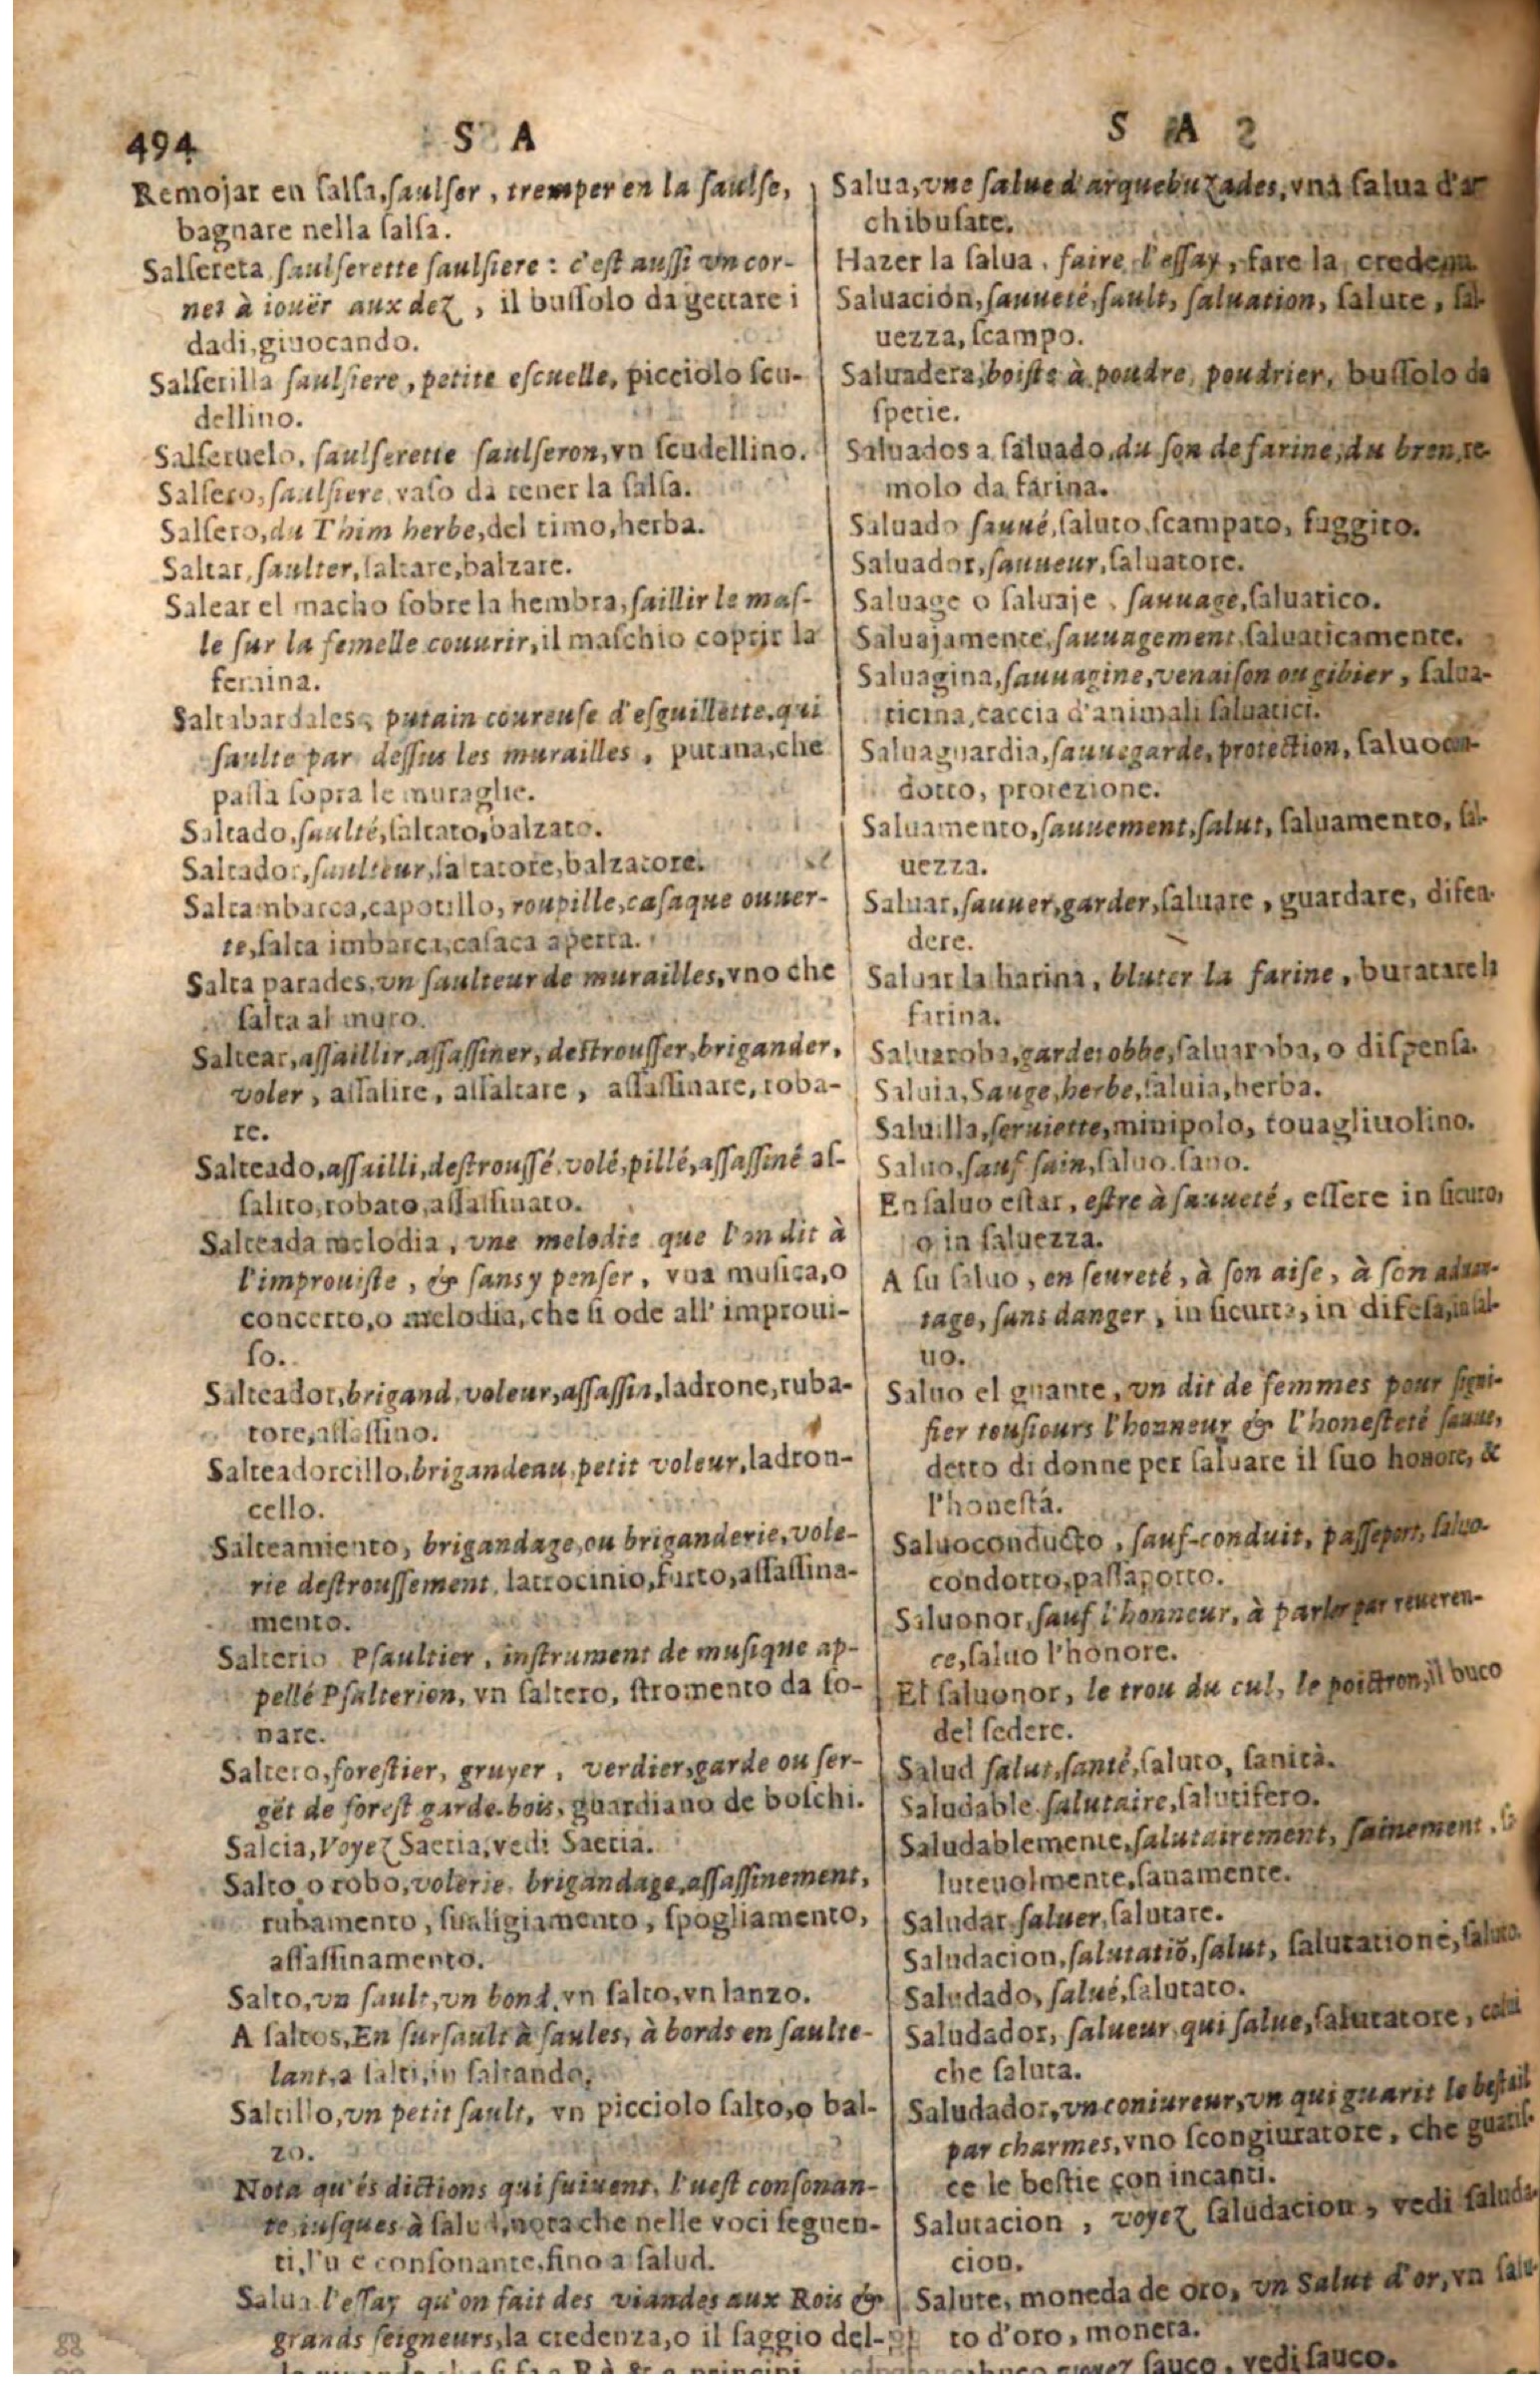 494
S A
Remojar en salsa, saulser, tremper en la saulse,
bagnare nella salsa.
Salsereta saulserette saulsiere : c'est aussi vn cor-
net à iouër aux dez, il bussolo da gettare i
dadi, giuocando.
Salserilla saulsiere, petite escuelle, picciolo scu-
dellino.
Salseruelo, saulserette saulseron, vn scudellino.
Salsero, saulsiere vaso da tener la salsa.
Salsero, du Thim herbe, del timo, herba.
Saltar, saulter, saltare, balzare.
Saltar el macho sobre la hembra, saillir le mas-
le sur la femelle couurir, il maschio coprir la
femina.
Saltabardales, putain coureuse d'esguillette, qui
saulte par dessus les murailles, putana, che
passa sopra le muraglie.
Saltado, saulté, saltato, balzato.
Saltador, saulteur, saltatore, balzatore.
Saltambarca, capotillo, roupille, casaque ouuer-
te, salta imbarca, casaca aperta.
Salta parades, vn saulteur de murailles, vno che
salta al muro.
Saltear, assaillir, assassiner, destrousser, brigander,
voler, assalire, assaltare, assassinare, roba-
re.
Salteado, assailli, destroussé, volé, pillé, assassiné as-
salito, robato, assassinato.
Salteada melodia, vne melodie que l'on dit à
l'improuiste, & sans y penser, vna musica, o
concerto, o melodia, che si ode all' improui-
so.
Salteador, brigand, voleur, assassin, ladrone, ruba-
tore, assassino.
Salteadorcillo, brigandeau, petit voleur, ladron-
cello.
Salteamiento, brigandage, ou briganderie, vole-
rie destroussement, latrocinio, furto, assassina-
mento.
Salterio Psaultier, instrument de musique ap-
pellé Psalterion, vn saltero, stromento da so-
nare.
Saltero, forestier, gruyer, verdier, garde ou ser-
gēt de forest garde-bois, guardiano de boschi.
Saltia, Voyez Saetia, vedi Saetia.
Salto o robo, volerie, brigandage, assassinement,
rubamento, sualigiamento, spogliamento,
assassinamento.
Salto, vn sault, vn bond, vn salto, vn lanzo.
A saltos, En sursault à saules, à bords en saulte-
lant, a salti, in saltando.
Saltillo, vn petit sault, vn picciolo salto, o bal-
zo.
Nota qu'és dictions qui suiuent, l'u est consonan-
te iusques à salud, nota che nelle voci seguen-
ti, l'u e consonante, fino a salud.
Salua l'essay qu'on fait des viandes aux Rois &
grands seigneurs, la credenza, o il saggio del-
S A
Salua, vne salue d'arquebuzades, vna salua d'ar
chibusate.
Hazer la salua, faire l'essay, fare la creden
Saluacion, sauueté, sault, saluation, salute, sal-
uezza, scampo.
Saluadera, boiste à poudre, poudrier, bussolo da
spetie.
Saluados a saluado, du son de farine, du bren, re-
molo da farina.
Saluado sauué, saluto, scampato, fuggito.
Saluador, sauueur, saluatore.
Saluage o saluaje, sauuage, saluatico.
Saluajamente, sauuagement, saluaticamente.
Saluagina, sauuagine, venaison ou gibier, salua-
ticina, caccia d'animali saluatici.
Saluaguardia, sauuegarde, protection, saluocon-
dotto, protezione.
Saluamento, sauuement, salut, saluamento, sal-
uezza.
Saluar, sauuer, garder, saluare, guardare, difen-
dere.
Saluar la harina, bluter la farine, buratare la
farina.
Saluaroba, garderobbe, saluaroba, o dispensa.
Saluia, Sauge, herbe, saluia, herba.
Saluilla, seruiette, minipolo, touagliuolino.
Saluo, sauf sain, saluo, sano.
En saluo estar, estre à sauueté, essere in sicuro,
o in saluezza.
A su saluo, en seureté, à son aise, à son aduan-
tage, sans danger, in sicurta, in difesa, in sal-
uo.
Saluo el guante, vn dit de femmes pour signi-
fier tousiours l'honneur & l'honesteté sauue,
detto di donne per saluare il suo honore, &
l'honestà.
Saluoconducto, sauf-conduit, passeport, saluo-
condotto, passaporto.
Saluonor, sauf l'honneur, à parler par reueren-
ce, saluo l'honore.
El saluonor, le trou du cul, le poictron, il buco
del sedere.
Salud salut, santé, saluto, sanità.
Saludable salutaire, salutifero.
Saludablemente, salutairement, sainement, sa
luteuolmente, sanamente.
Saludar saluer, salutare.
Saludacion, salutatiō, salut, salutatione, saluto.
Saludado, salué, salutato.
Saludador, salueur, qui salue, salutatore, colui
che saluta.
Saludador, vn coniureur, vn qui guarit le bestail
par charmes, vno scongiuratore, che guaris-
ce le bestie con incanti.
Salutacion, voyez saludacion, vedi saluda-
cion.
Salute, moneda de oro, vn Salut d'or, vn salu-
to d'oro, moneta.
sauco, vedi sauco.